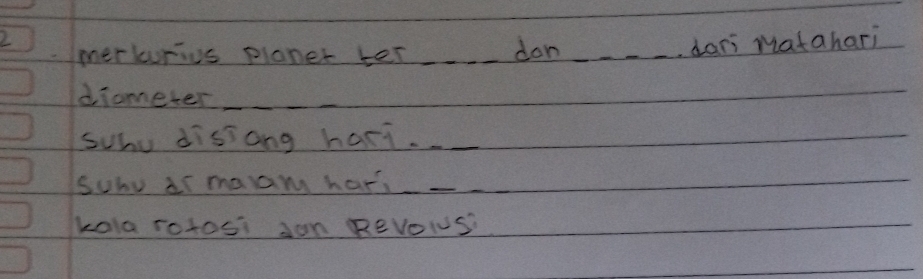 2. merkurius planet ter ____ dan ____. dari Matahari
diameter ____
suhu disiang hari. __
suhu di malam hari ___
kala rotasi dan Revolusi